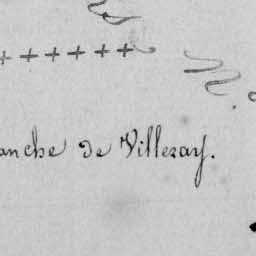 ++++++
anche de Villeray.